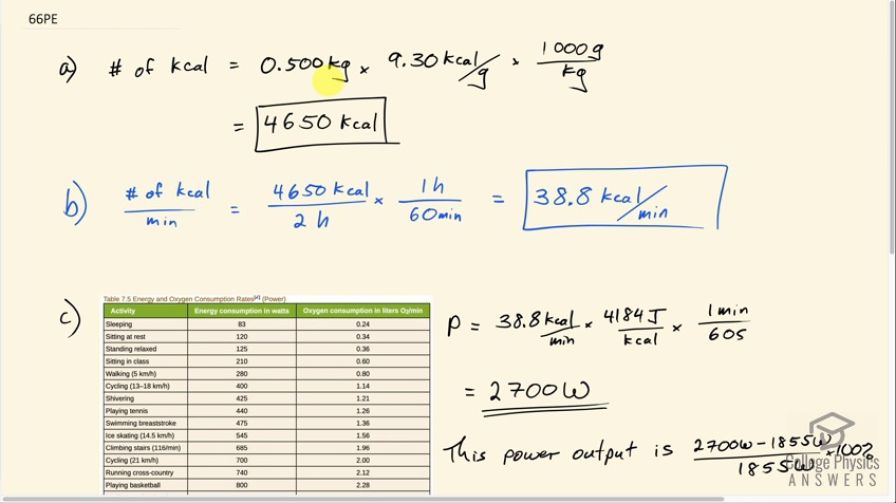 66PE
a) # of kcal = 0.500 kg × 9.30 kcal/g × 1000g/kg
= 4650 kcal
b) # of kcal/min = 4650 kcal/2 h × 1h/60min = 38.8 kcal/min
c)
Table 7.5 Energy and Oxygen Consumption Rates[2] (Power)
Activity Energy consumption in watts Oxygen consumption in liters O2/min
Sleeping 83 0.24
Sitting at rest 120 0.34
Standing relaxed 125 0.36
Sitting in class 210 0.60
Walking (5 km/h) 280 0.80
Cycling (13–18 km/h) 400 1.14
Shivering 425 1.21
Playing tennis 440 1.26
Swimming breaststroke 475 1.36
Ice skating (14.5 km/h) 545 1.56
Climbing stairs (116/min) 685 1.96
Cycling (21 km/h) 700 2.00
Running cross-country 740 2.12
Playing basketball 800 2.28
P = 38.8 kcal/min × 4184 J/kcal × 1 min/60s
= 2700 W
This power output is 2700W − 1855W/1855W × 100%
College Physics
ANSWERS